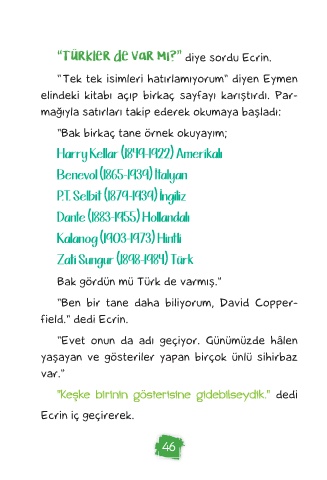 "TÜRKler de var mı?" diye sordu Ecrin.
"Tek tek isimleri hatırlamıyorum" diyen Eymen
elindeki kitabı açıp birkaç sayfayı karıştırdı. Par-
mağıyla satırları takip ederek okumaya başladı:
"Bak birkaç tane örnek okuyayım;
Harry Kellar (1849-1922) Amerikalı
Benevol (1865-1939) İtalyan
P.T. Selbit (1879-1939) İngiliz
Dante (1883-1955) Hollandalı
Kalanog (1903-1973) Hintli
Zati Sungur (1898-1984) Türk
Bak gördün mü Türk de varmış."
"Ben bir tane daha biliyorum, David Copper-
field." dedi Ecrin.
"Evet onun da adı geçiyor. Günümüzde hâlen
yaşayan ve gösteriler yapan birçok ünlü sihirbaz
var."
"Keşke birinin gösterisine gidebilseydik." dedi
Ecrin iç geçirerek.
46